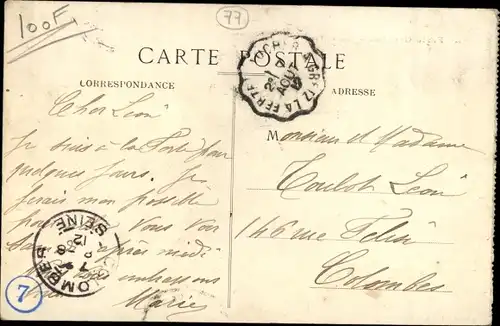 100F
77
CARTE POSTALE
CORRESPONDANCE
ADRESSE
Cher Léon
Je suis à la Ferté pour
quelques jours. Je
ferai mon possible
pour vous voir
après midi
vous embrassons
Marie
Monsieur et Madame
Toulot Léon
146 rue Félix
Colombes
LA FERTE
AOU
COLOMBES
SEINE
7